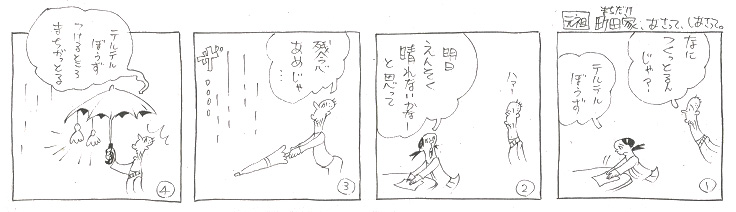 元祖 町田家、あさって、しあさって。
まちだけ
なに
つくっとるん
じゃ？
テルテル
ぼうず
①
明日
えんそく
晴れないかなー
と思って
②
残念
あめじゃ…
③
テルテル
ぼうず
つけるところ
まちがっとる
④